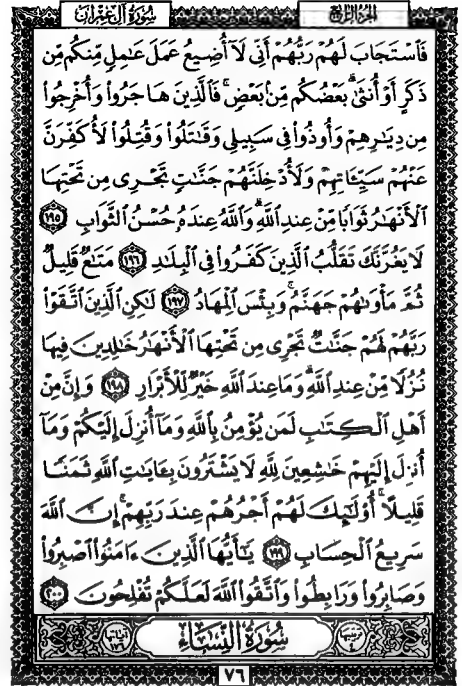 الجزء الرابع
سورة آل عمران
فَٱسۡتَجَابَ لَهُمۡ رَبُّهُمۡ أَنِّي لَآ أُضِيعُ عَمَلَ عَٰمِلٖ مِّنكُم مِّن
ذَكَرٍ أَوۡ أُنثَىٰۖ بَعۡضُكُم مِّنۢ بَعۡضٖۖ فَٱلَّذِينَ هَاجَرُواْ وَأُخۡرِجُواْ
مِن دِيَٰرِهِمۡ وَأُوذُواْ فِي سَبِيلِي وَقَٰتَلُواْ وَقُتِلُواْ لَأُكَفِّرَنَّ
عَنۡهُمۡ سَيِّـَٔاتِهِمۡ وَلَأُدۡخِلَنَّهُمۡ جَنَّٰتٖ تَجۡرِي مِن تَحۡتِهَا
ٱلۡأَنۡهَٰرُ ثَوَابٗا مِّنۡ عِندِ ٱللَّهِۚ وَٱللَّهُ عِندَهُۥ حُسۡنُ ٱلثَّوَابِ ١٩٥
لَا يَغُرَّنَّكَ تَقَلُّبُ ٱلَّذِينَ كَفَرُواْ فِي ٱلۡبِلَٰدِ ١٩٦ مَتَٰعٞ قَلِيلٞ
ثُمَّ مَأۡوَىٰهُمۡ جَهَنَّمُۖ وَبِئۡسَ ٱلۡمِهَادُ ١٩٧ لَٰكِنِ ٱلَّذِينَ ٱتَّقَوۡاْ
رَبَّهُمۡ لَهُمۡ جَنَّٰتٞ تَجۡرِي مِن تَحۡتِهَا ٱلۡأَنۡهَٰرُ خَٰلِدِينَ فِيهَا
نُزُلٗا مِّنۡ عِندِ ٱللَّهِۗ وَمَا عِندَ ٱللَّهِ خَيۡرٞ لِّلۡأَبۡرَارِ ١٩٨ وَإِنَّ مِنۡ
أَهۡلِ ٱلۡكِتَٰبِ لَمَن يُؤۡمِنُ بِٱللَّهِ وَمَآ أُنزِلَ إِلَيۡكُمۡ وَمَآ
أُنزِلَ إِلَيۡهِمۡ خَٰشِعِينَ لِلَّهِ لَا يَشۡتَرُونَ بِـَٔايَٰتِ ٱللَّهِ ثَمَنٗا
قَلِيلًاۚ أُوْلَٰٓئِكَ لَهُمۡ أَجۡرُهُمۡ عِندَ رَبِّهِمۡۗ إِنَّ ٱللَّهَ
سَرِيعُ ٱلۡحِسَابِ ١٩٩ يَٰٓأَيُّهَا ٱلَّذِينَ ءَامَنُواْ ٱصۡبِرُواْ
وَصَابِرُواْ وَرَابِطُواْ وَٱتَّقُواْ ٱللَّهَ لَعَلَّكُمۡ تُفۡلِحُونَ ٢٠٠
ترتيبها ٤ سُورَةُ النِّسَاء آياتها ١٧٦
٧٦